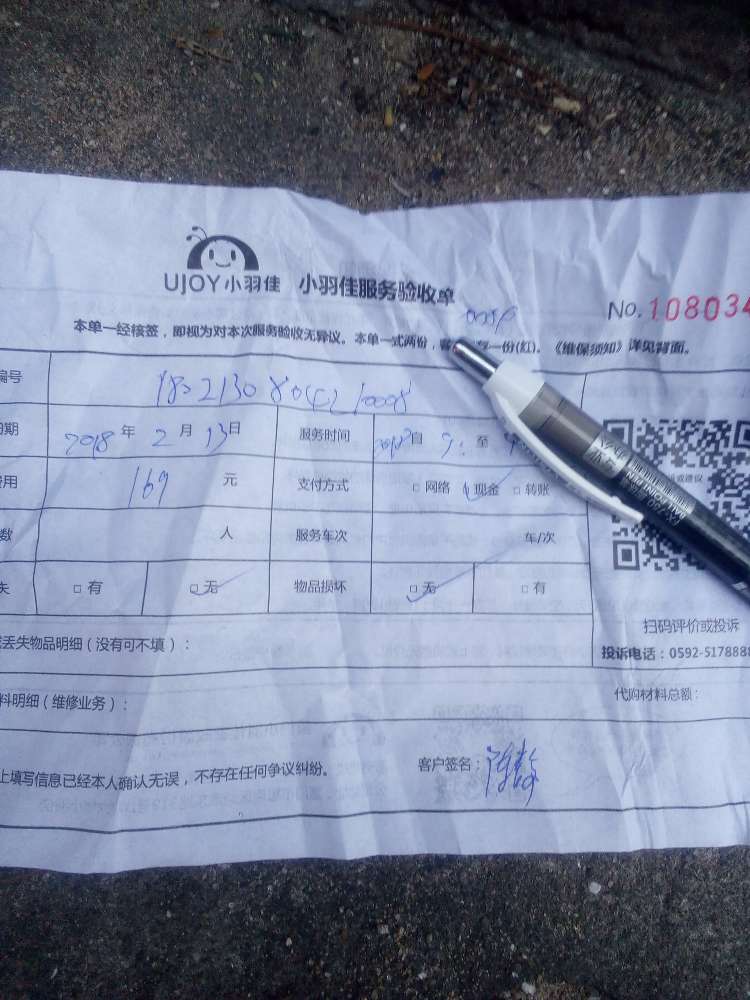 UJOY小羽佳 小羽佳服务验收单
No. 108034
本单一经核签，即视为对本次服务验收无异议。本单一式两份，客 存一份(红)。《维保须知》详见背面。
编号
日期 2018 年 2 月 13 日 服务时间 自 至
费用 169 元 支付方式 □ 网络 □ 现金 □ 转账
数 人 服务车次 车/次
失 □ 有 □ 无 物品损坏 □ 无 □ 有
扫码评价或投诉
丢失物品明细（没有可不填）： 投诉电话：0592-5178888
料明细（维修业务）： 代购材料总额：
上填写信息已经本人确认无误，不存在任何争议纠纷。 客户签名：